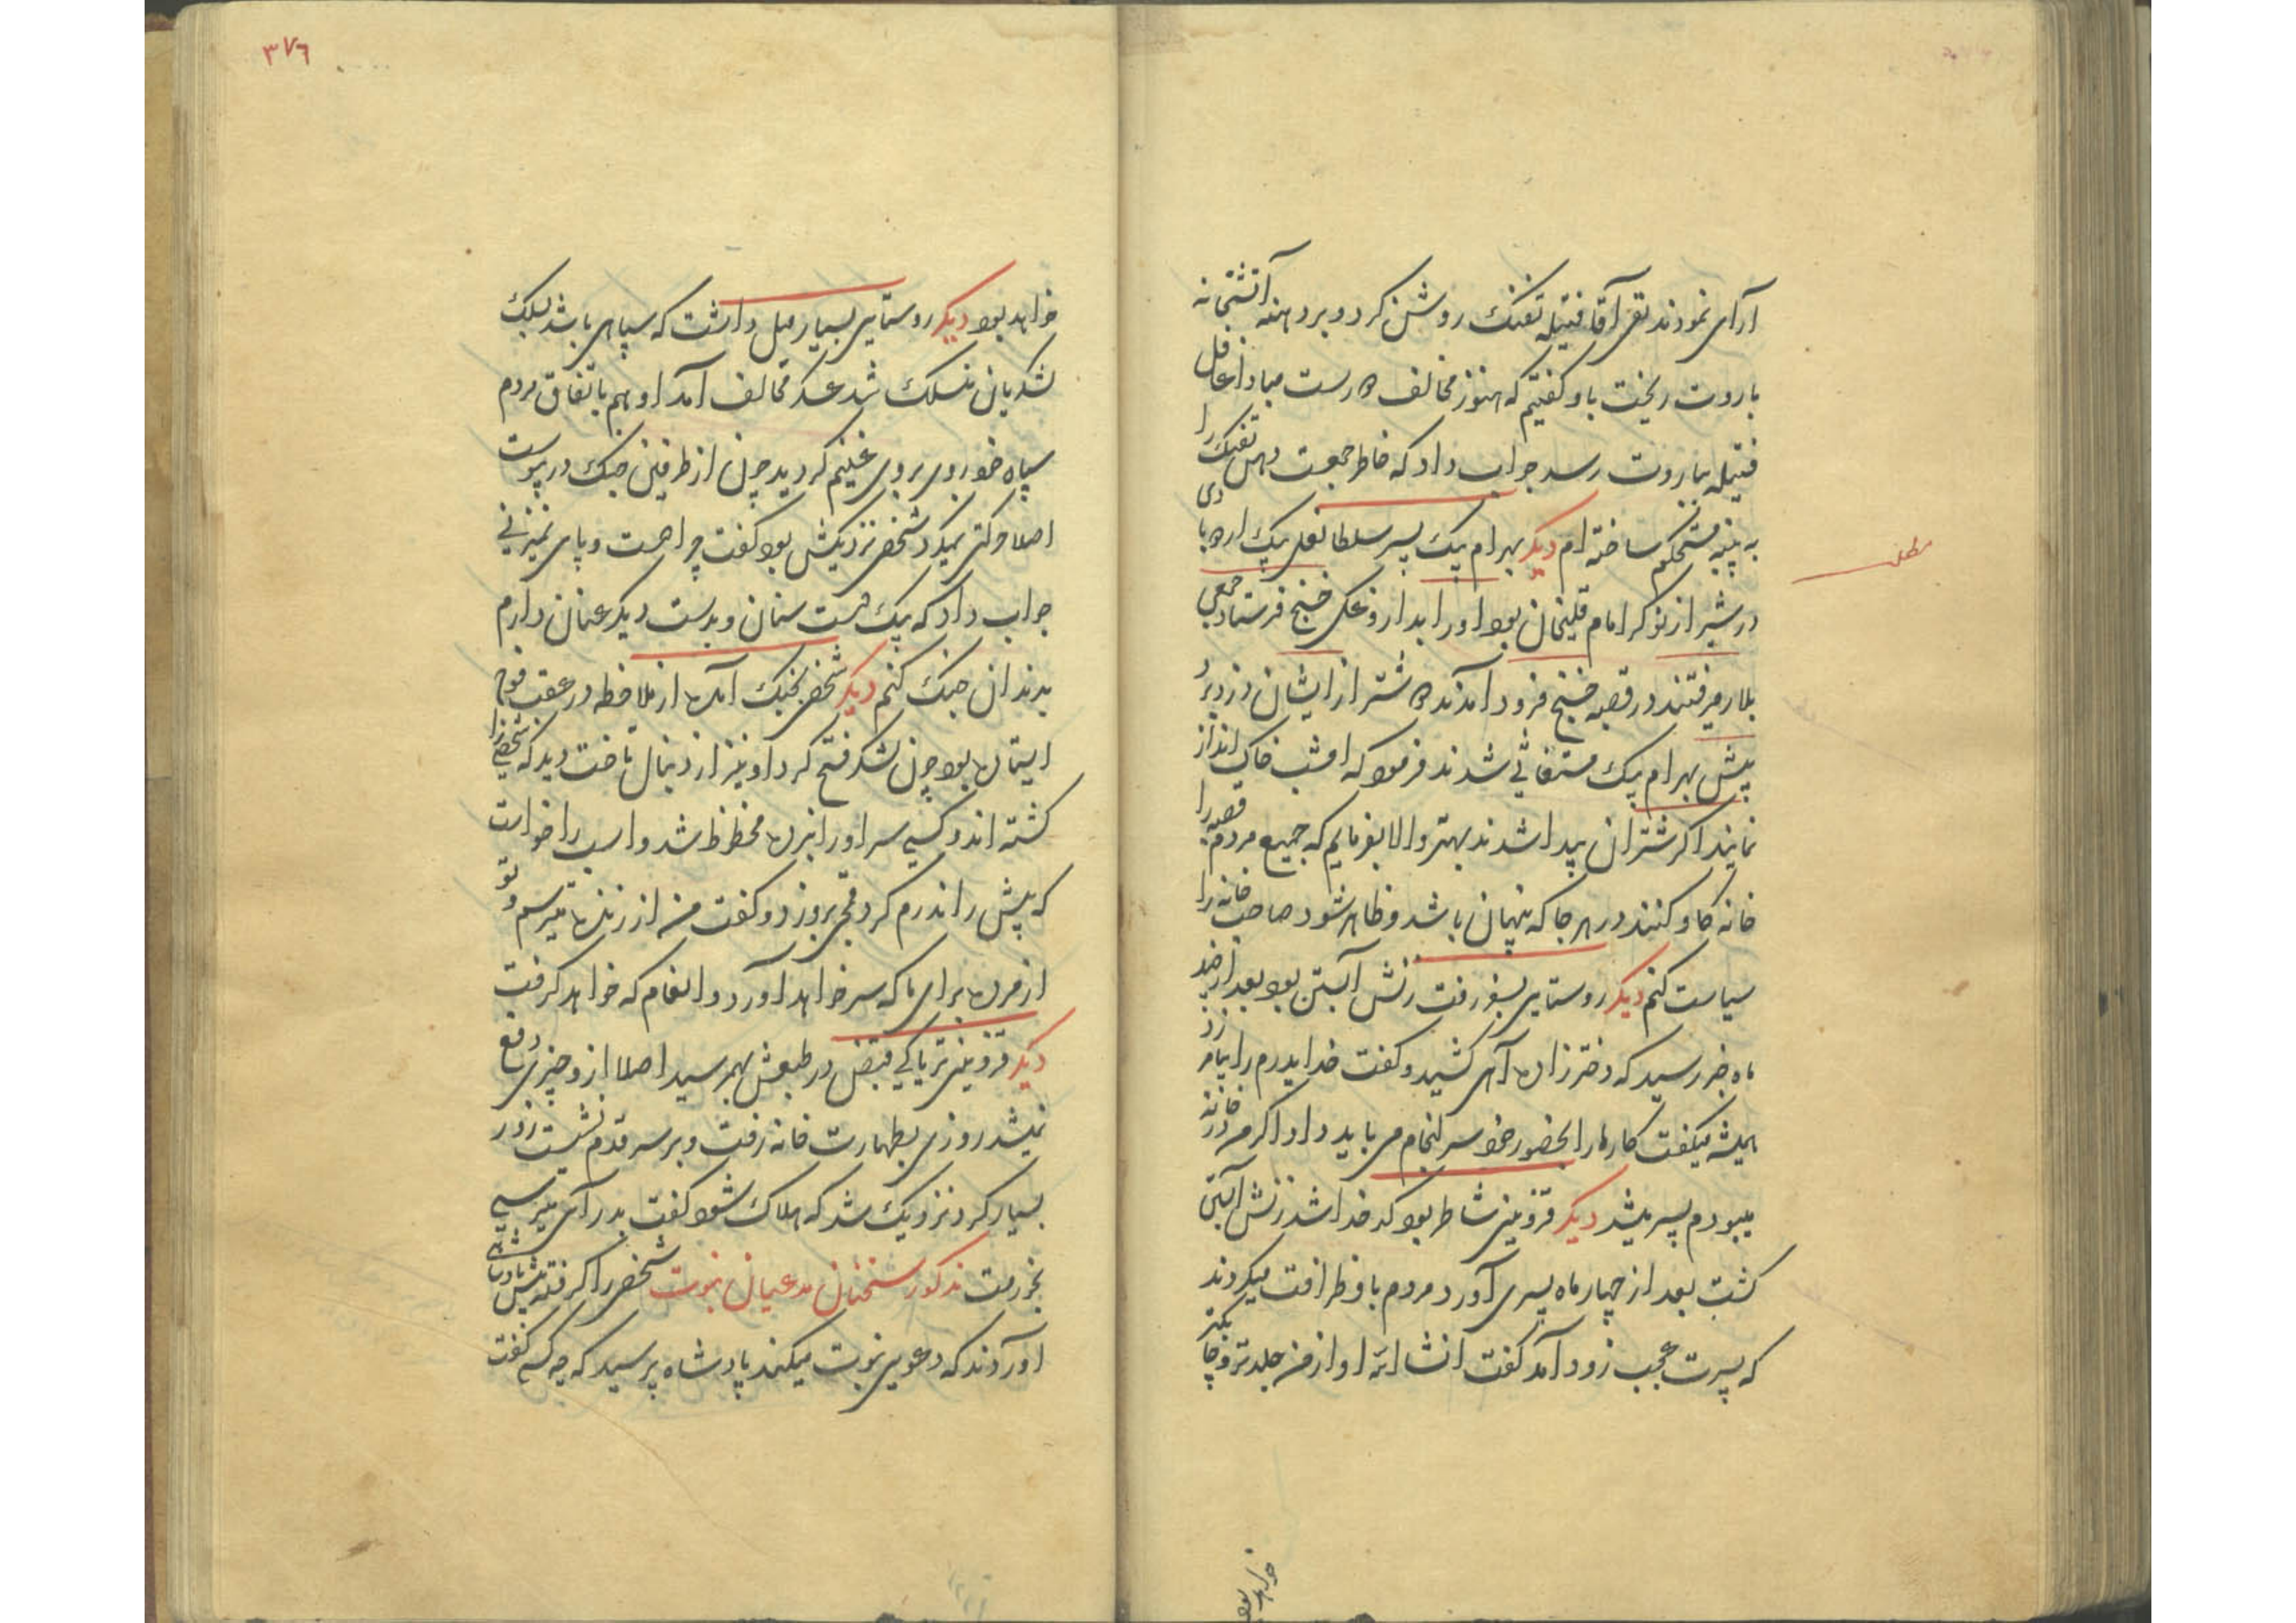 آرای نمودند تقی آقا فتیله تفنک روشن کرد و برد هنه آتشخانه
باروت ریخت باو کفتیم که هنوز مخالف دورست مبادا غافل
فتیله بباروت رسد جواب داد که خاطر جمعست دهن تفنک را
به پنبه مستحکم ساخته ام دیکر بهرام بیک پسر سلطانعلی بیک
در شیراز نوکر امام قلیخان بود او را بداروغکی خنج فرستاد جمعی
بلار میرفتند در قصبه خنج فرود آمدند دو شتر از ایشان دزد برد
پیش بهرام بیک مستغاثی شدند فرمود که امشب خاک انداز
نمایند اکر شتران پیدا شدند بهتر والا بفرمایم که جمیع مردم قصبه را
خانه کاو کنند در هر جا که پنهان باشد و ظاهر شود صاحب خانه را
سیاست کنم دیکر روستایی بسفر رفت زنش آبستن بود بعد از چند
ماه خبر رسید که دختر زاده آهی کشید و کفت خدا پدرم را بیامرزد
همیشه میکفت کارها را بحضور خود سرانجام می باید داد اکر من در خانه
میبودم پسر میشد دیکر قزوینی شاطر بود کدخدا شد زنش آبستن
کشت بعد از چهار ماه پسری آورد مردم باو ظرافت میکردند
که پسرت عجب زود آمد کفت انشاالله او از من جلدتر و چابکتر
خواهد بود
۳۷٦
خواهد بود دیکر روستایی بسیار میل داشت که سپاهی باشد بسلک
لشکریان منسلک شد عسکر مخالف آمد او هم باتفاق مردم
سپاه خود روی بروی غنیم کردید چون از طرفین جنک در پیوست
اصلا حرکتی نمیکرد شخصی نزدیکش بود کفت چرا دست و پای نمیزنی
جواب داد که بیک دست سنان و بدست دیکر عنان دارم
بدندان جنک کنم دیکر شخصی بجنک آمده از ملاحظه در عقب فوج
ایستاده بود چون لشکر فتح کرد او نیز از دنبال تاخت دید که شخصی را
کشته اند و کسی سر او را نبرده محظوظ شد و اسب را خواست
که پیش راند رم کرد قمچی بروزد و کفت من از زنده میترسم و تو
از مرده برای ما که سر خواهد آورد و انعام که خواهد کرفت
دیکر قزوینی تریاکی قبض در طبعش بهمرسید اصلا ازو چیزی دفع
نمیشد روزی بطهارت خانه رفت و بر سر قدم نشست زور
بسیار کرد نزدیک شد که هلاک شود کفت بدر آی میترسی
بخورمت مذکور سخنان مدعیان نبوت شخصی را کرفته پیش پادشاهی
آوردند که دعوی نبوت میکند پادشاه پرسید که چه کسی کفت